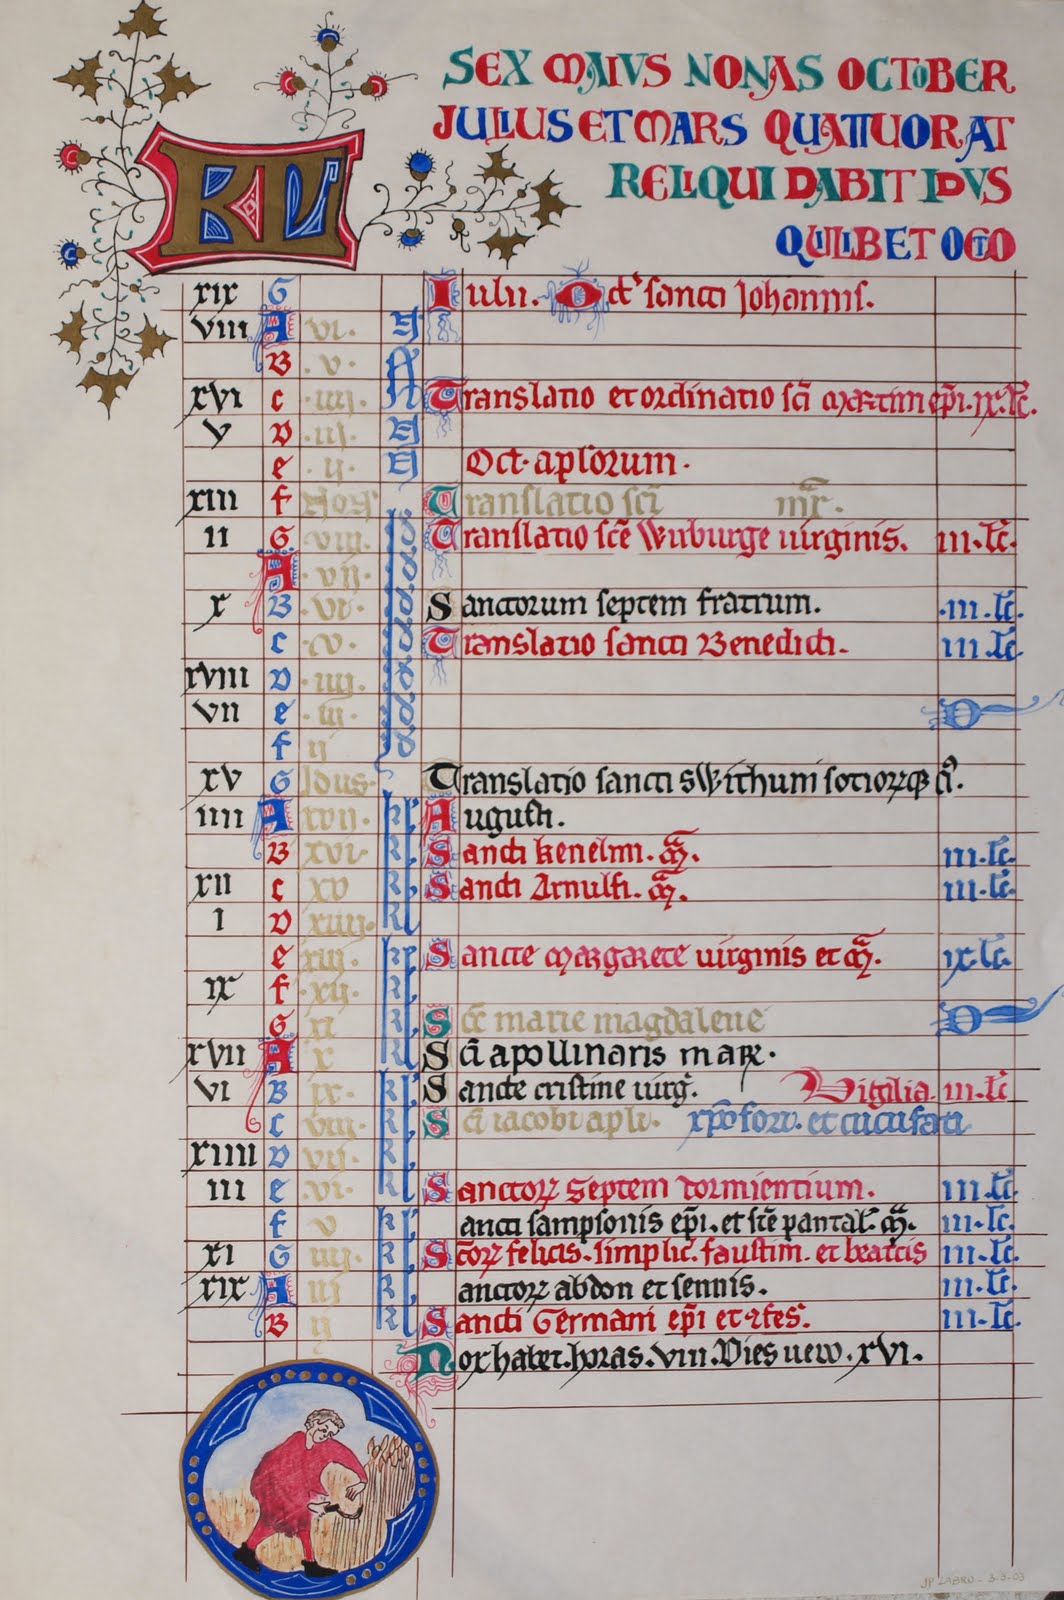 SEX MAIVS NONAS OCTOBER
JULIUS ET MARS QUATTUOR AT
RELIQUI DABIT IDVS
QUILIBET OCTO
KL
xix G Iulii. Oct' sancti Johannis.
viii A vi.
B .v.
xvi c .iiii. Translatio et ordinatio sci martini epi. ix. lc.
v D .iii.
e .ii. Oct. aplorum.
xiii f Nos Translatio sci mr.
ii G viii. Translatio sce Wiburge uirginis. iii. lc.
A .vii.
x B .vi. Sanctorum septem fratrum. .iii. lc
c .v. Translatio sancti Benedicti. iii. lc.
xviii D .iiii.
vii e .iii. D
f ii
xv G Idus Translatio sancti sWithuni
iiii A xvii. kl' Augusti.
B xvi. kl' Sancti kenelmi. m. iii. lc.
xii c xv kl' Sancti Arnulfi. m. iii. lc.
i D xiiii. kl'
e xiii. kl' Sancte margarete uirginis et m. ix. lc.
ix f .xii. kl'
G xi kl' Sce marie magdalene D
xvii A x kl' Sci apollinaris mar.
vi B ix. kl' Sancte cristine uirg. Vigilia. iii. lc
c viii. kl' Sci iacobi apli. xpofori. et cucufati
xiiii D vii. kl'
iii e .vi. kl' Sanctor septem dormientium. iii. lc.
f v kl' ancti sampsonis epi. et sce pantal. m. iii. lc.
xi G iiii. kl' Scor felicis. simplic. faustini. et beatcis iii. lc.
xix A iii kl' anctor abdon et sennis. iii. lc.
B ii kl' Sancti Germani epi et cfes. iii. lc.
Nox habet. horas. viii. Dies uero. xvi.
JP LABRO - 3.3.03